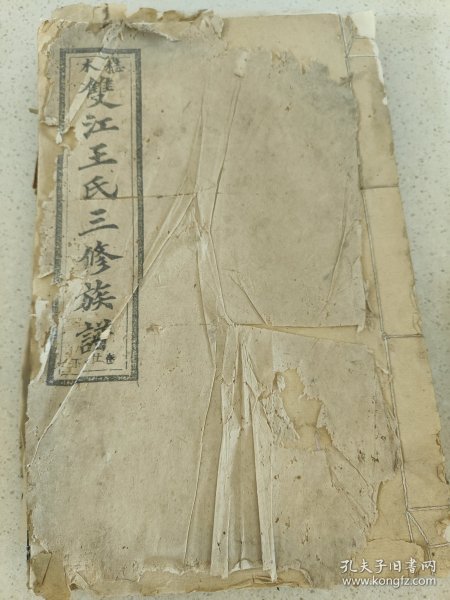 雙江王氏三修族譜
孔夫子旧书网
www.kongfz.com